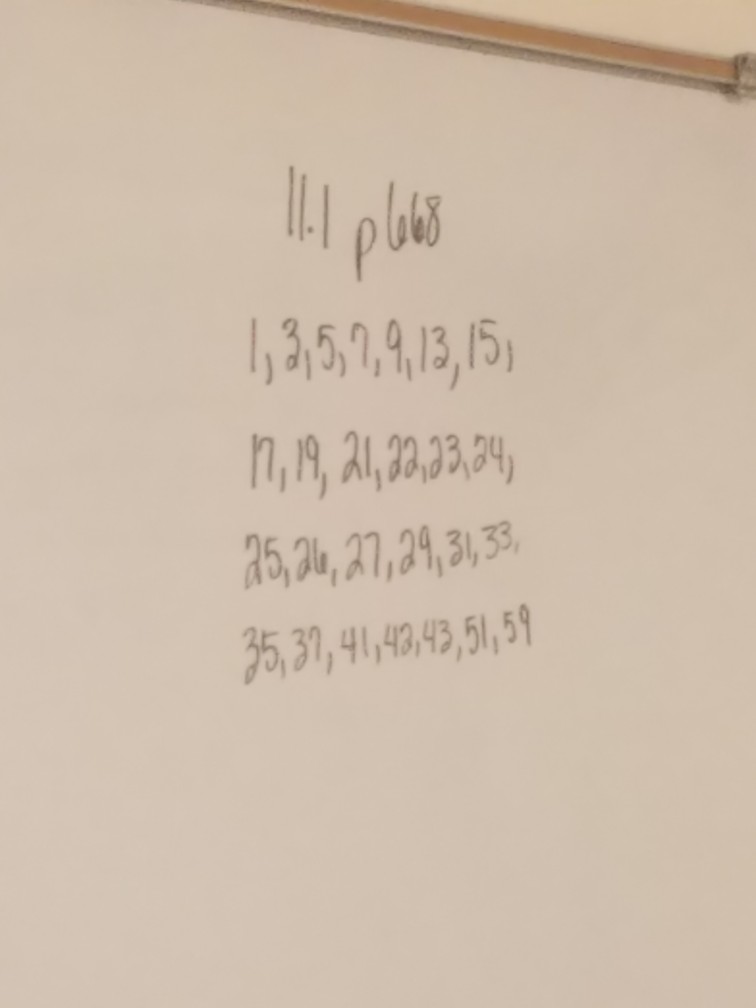 11.1 p668
1, 3, 5, 7, 9, 13, 15,
17, 19, 21, 22, 23, 24,
25, 26, 27, 29, 31, 33,
35, 37, 41, 42, 43, 51, 59